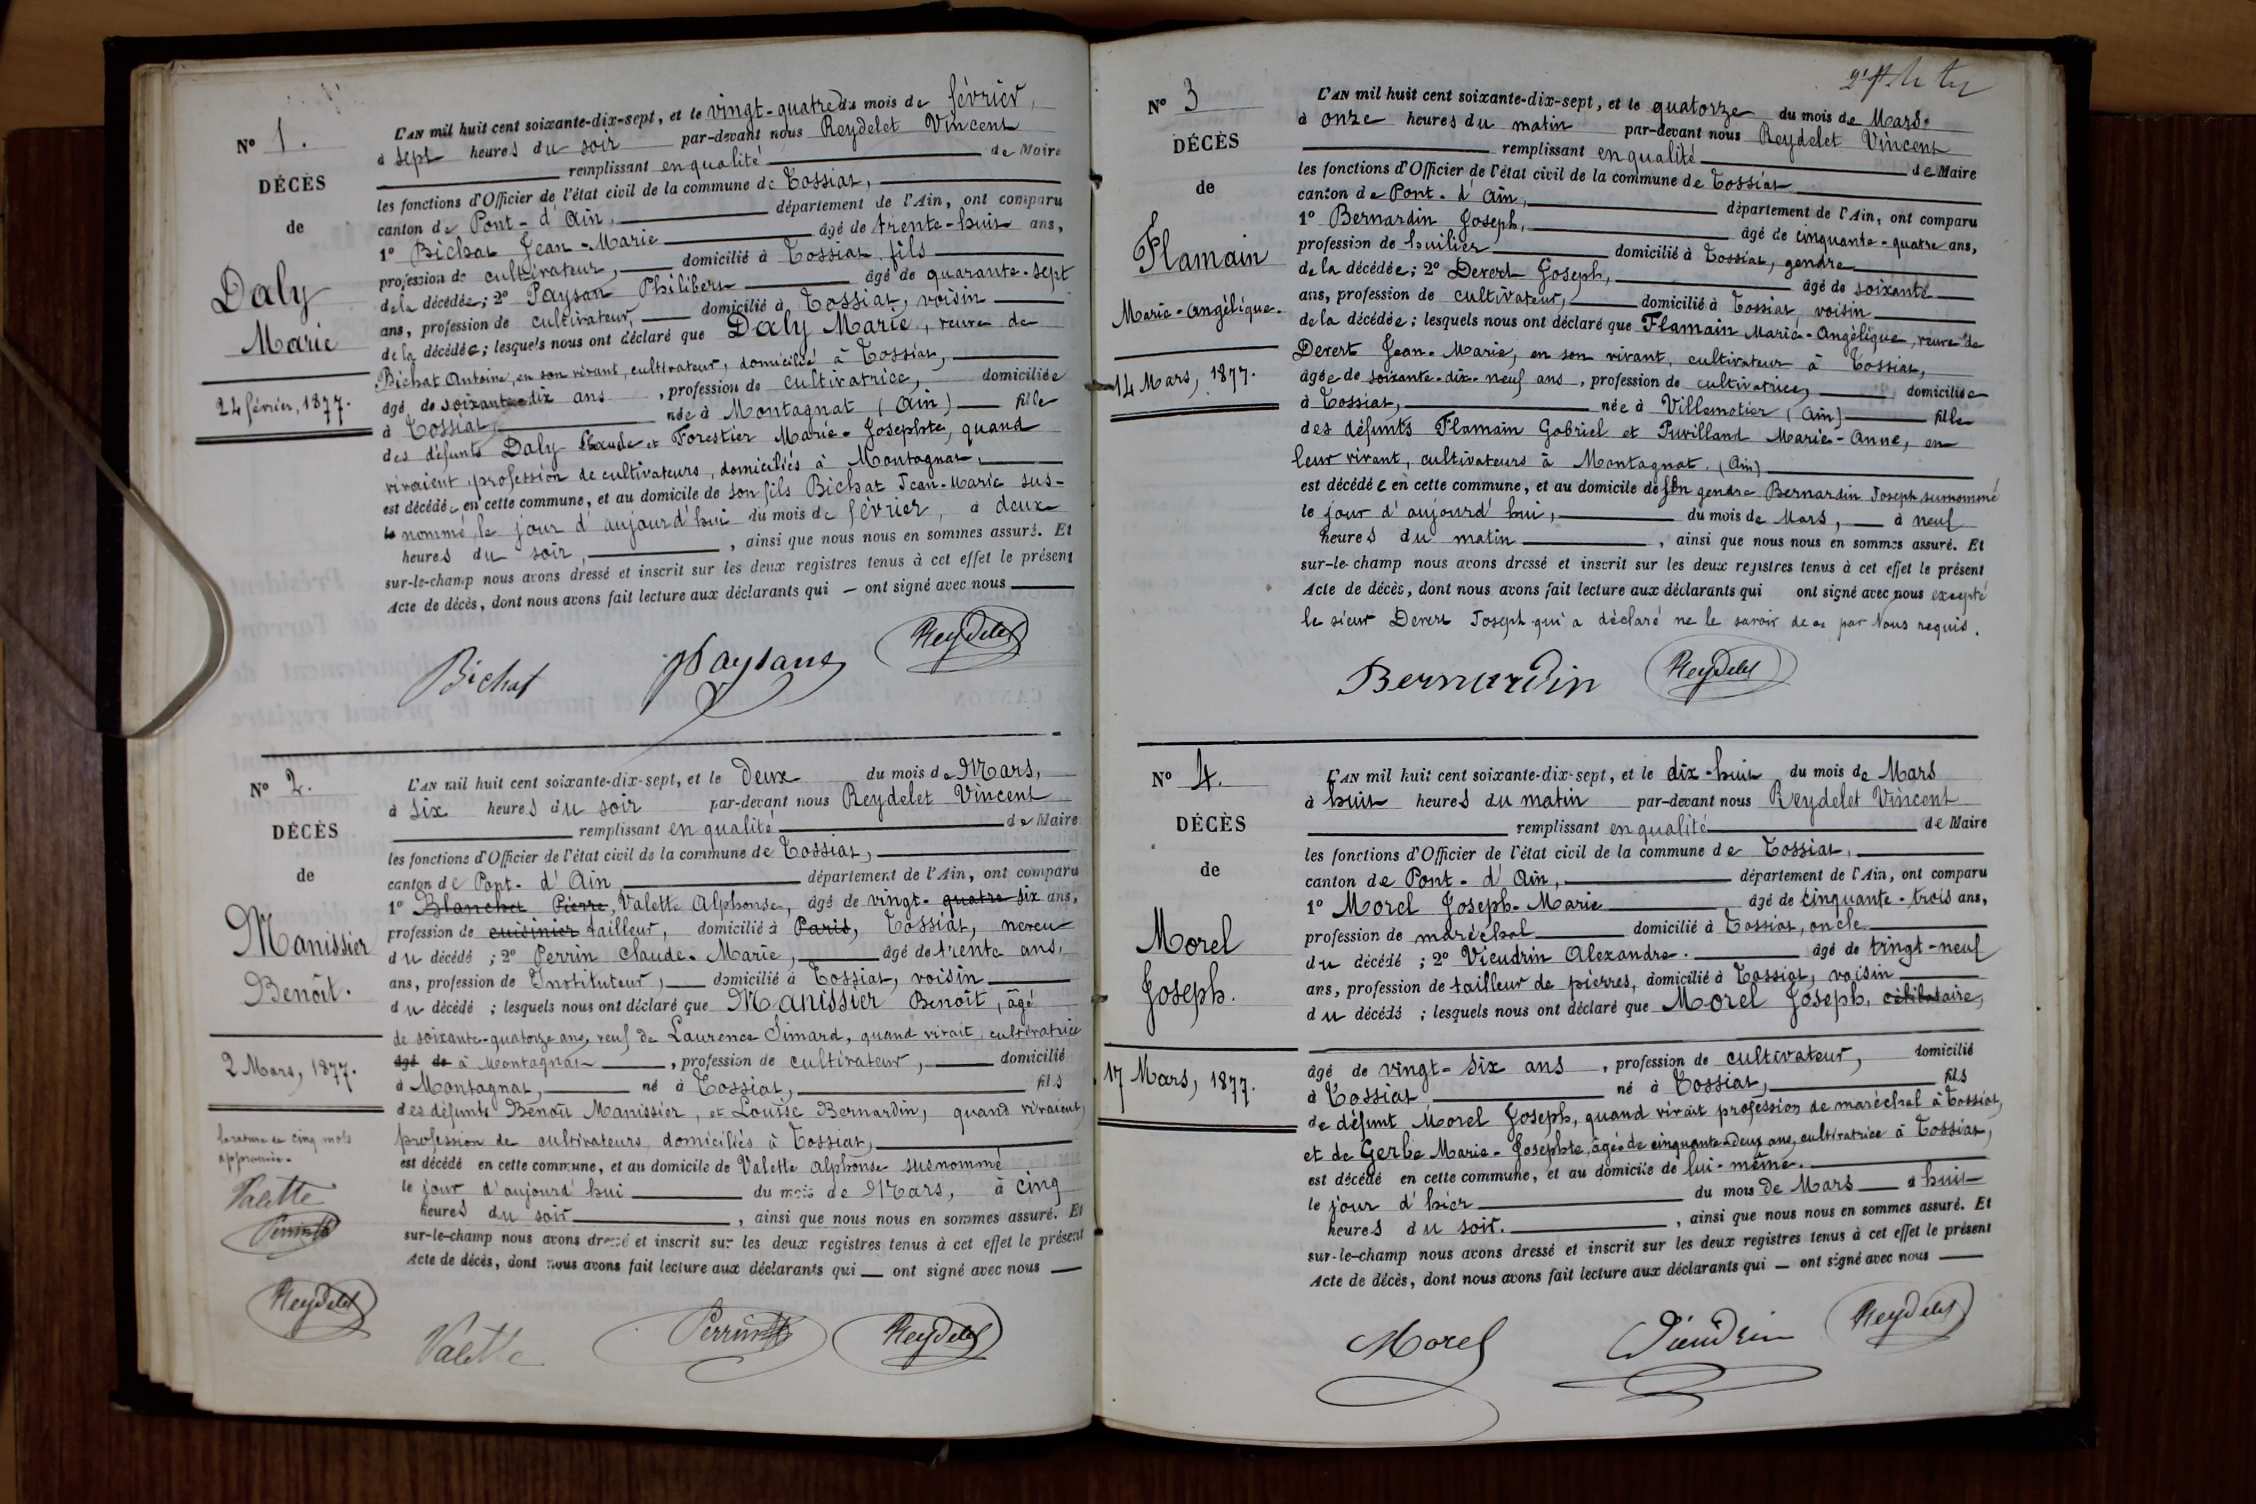 N° 1.
DÉCÈS
de
Daly
Marie
24 février, 1877.
L'AN mil huit cent soixante-dix-sept, et le vingt-quatre du mois de février,
à sept heures du soir par-devant nous Reydelet Vincent
remplissant en qualité de Maire
les fonctions d'Officier de l'état civil de la commune de Tossiat,
canton de Pont-d'Ain, département de l'Ain, ont comparu
1° Bichat Jean-Marie âgé de trente-huit ans,
profession de cultivateur, domicilié à Tossiat, fils
de la décédée; 2° Paysan Philibert âgé de quarante-sept
ans, profession de cultivateur, domicilié à Tossiat, voisin
de la décédée; lesquels nous ont déclaré que Daly Marie, veuve de
Bichat Antoine, en son vivant, cultivateur, domicilié à Tossiat,
âgé de soixante-dix ans, profession de cultivatrice, domiciliée
à Tossiat, née à Montagnat (Ain) fille
des défunts Daly Claude et Forestier Marie-Josephte, quand
vivaient profession de cultivateurs, domiciliés à Montagnat,
est décédée en cette commune, et au domicile de son fils Bichat Jean-Marie sus-
nommé le jour d'aujourd'hui du mois de février, à deux
heures du soir, ainsi que nous nous en sommes assuré. Et
sur-le-champ nous avons dressé et inscrit sur les deux registres tenus à cet effet le présent
Acte de décès, dont nous avons fait lecture aux déclarants qui ont signé avec nous
Bichat Paysan Reydelet
N° 2.
DÉCÈS
de
Manissier
Benoît.
2 Mars, 1877.
la rature de cinq mots
approuvée.
Valette
Perrin
Reydelet
L'AN mil huit cent soixante-dix-sept, et le deux du mois de Mars,
à six heures du soir par-devant nous Reydelet Vincent
remplissant en qualité de Maire
les fonctions d'Officier de l'état civil de la commune de Tossiat,
canton de Pont-d'Ain département de l'Ain, ont comparu
1° Blanchet Pierre, Valette Alphonse, âgé de vingt-quatre six ans,
profession de cuisinier tailleur, domicilié à Paris, Tossiat, neveu
du décédé; 2° Perrin Claude-Marie, âgé de trente ans,
ans, profession de Instituteur, domicilié à Tossiat, voisin
du décédé; lesquels nous ont déclaré que Manissier Benoît, âgé
de soixante-quatorze ans, veuf de Laurence Simard, quand vivait, cultivatrice
âgé de à Montagnat, profession de cultivateur, domicilié
à Montagnat, né à Tossiat, fils
des défunts Benoît Manissier, et Louise Bernardin, quand vivaient,
profession de cultivateurs, domiciliés à Tossiat,
est décédé en cette commune, et au domicile de Valette Alphonse susnommé
le jour d'aujourd'hui du mois de Mars, à cinq
heures du soir, ainsi que nous nous en sommes assuré. Et
sur-le-champ nous avons dressé et inscrit sur les deux registres tenus à cet effet le présent
Acte de décès, dont nous avons fait lecture aux déclarants qui ont signé avec nous
Valette Perrin Reydelet
N° 3
DÉCÈS
de
Flamain
Marie-Angélique.
14 Mars, 1877.
L'AN mil huit cent soixante-dix-sept, et le quatorze du mois de Mars.
à onze heures du matin par-devant nous Reydelet Vincent
remplissant en qualité de Maire
les fonctions d'Officier de l'état civil de la commune de Tossiat
canton de Pont-d'Ain, département de l'Ain, ont comparu
1° Bernardin Joseph, âgé de cinquante-quatre ans,
profession de huilier domicilié à Tossiat, gendre
de la décédée; 2° Devert Joseph, âgé de soixante
ans, profession de cultivateur, domicilié à Tossiat, voisin
de la décédée; lesquels nous ont déclaré que Flamain Marie-Angélique, veuve de
Devert Jean-Marie, en son vivant, cultivateur à Tossiat,
âgée de soixante-dix-neuf ans, profession de cultivatrice, domiciliée
à Tossiat, née à Villemotier (Ain) fille
des défunts Flamain Gabriel et Puvilland Marie-Anne, en
leur vivant, cultivateurs à Montagnat. (Ain)
est décédée en cette commune, et au domicile de son gendre Bernardin Joseph, surnommé
le jour d'aujourd'hui, du mois de Mars, à neuf
heures du matin, ainsi que nous nous en sommes assuré. Et
sur-le-champ nous avons dressé et inscrit sur les deux registres tenus à cet effet le présent
Acte de décès, dont nous avons fait lecture aux déclarants qui ont signé avec nous excepté
le sieur Devert Joseph qui a déclaré ne le savoir de ce par Nous requis.
Bernardin Reydelet
N° 4.
DÉCÈS
de
Morel
Joseph.
17 Mars, 1877.
L'AN mil huit cent soixante-dix-sept, et le dix-huit du mois de Mars
à huit heures du matin par-devant nous Reydelet Vincent
remplissant en qualité de Maire
les fonctions d'Officier de l'état civil de la commune de Tossiat,
canton de Pont-d'Ain, département de l'Ain, ont comparu
1° Morel Joseph-Marie âgé de cinquante-trois ans,
profession de maréchal domicilié à Tossiat, oncle
du décédé; 2° Vieudrin Alexandre. âgé de vingt-neuf
ans, profession de tailleur de pierres, domicilié à Tossiat, voisin
du décédé; lesquels nous ont déclaré que Morel Joseph, célibataire,
âgé de vingt-six ans, profession de cultivateur, domicilié
à Tossiat, né à Tossiat, fils
de défunt Morel Joseph, quand vivait profession de maréchal à Tossiat,
et de Gerbe Marie-Josephte, âgée de cinquante-deux ans, cultivatrice à Tossiat,
est décédé en cette commune, et au domicile de lui-même.
le jour d'hier du mois de Mars à huit
heures du soir. , ainsi que nous nous en sommes assuré. Et
sur-le-champ nous avons dressé et inscrit sur les deux registres tenus à cet effet le présent
Acte de décès, dont nous avons fait lecture aux déclarants qui ont signé avec nous
Morel Vieudrin Reydelet